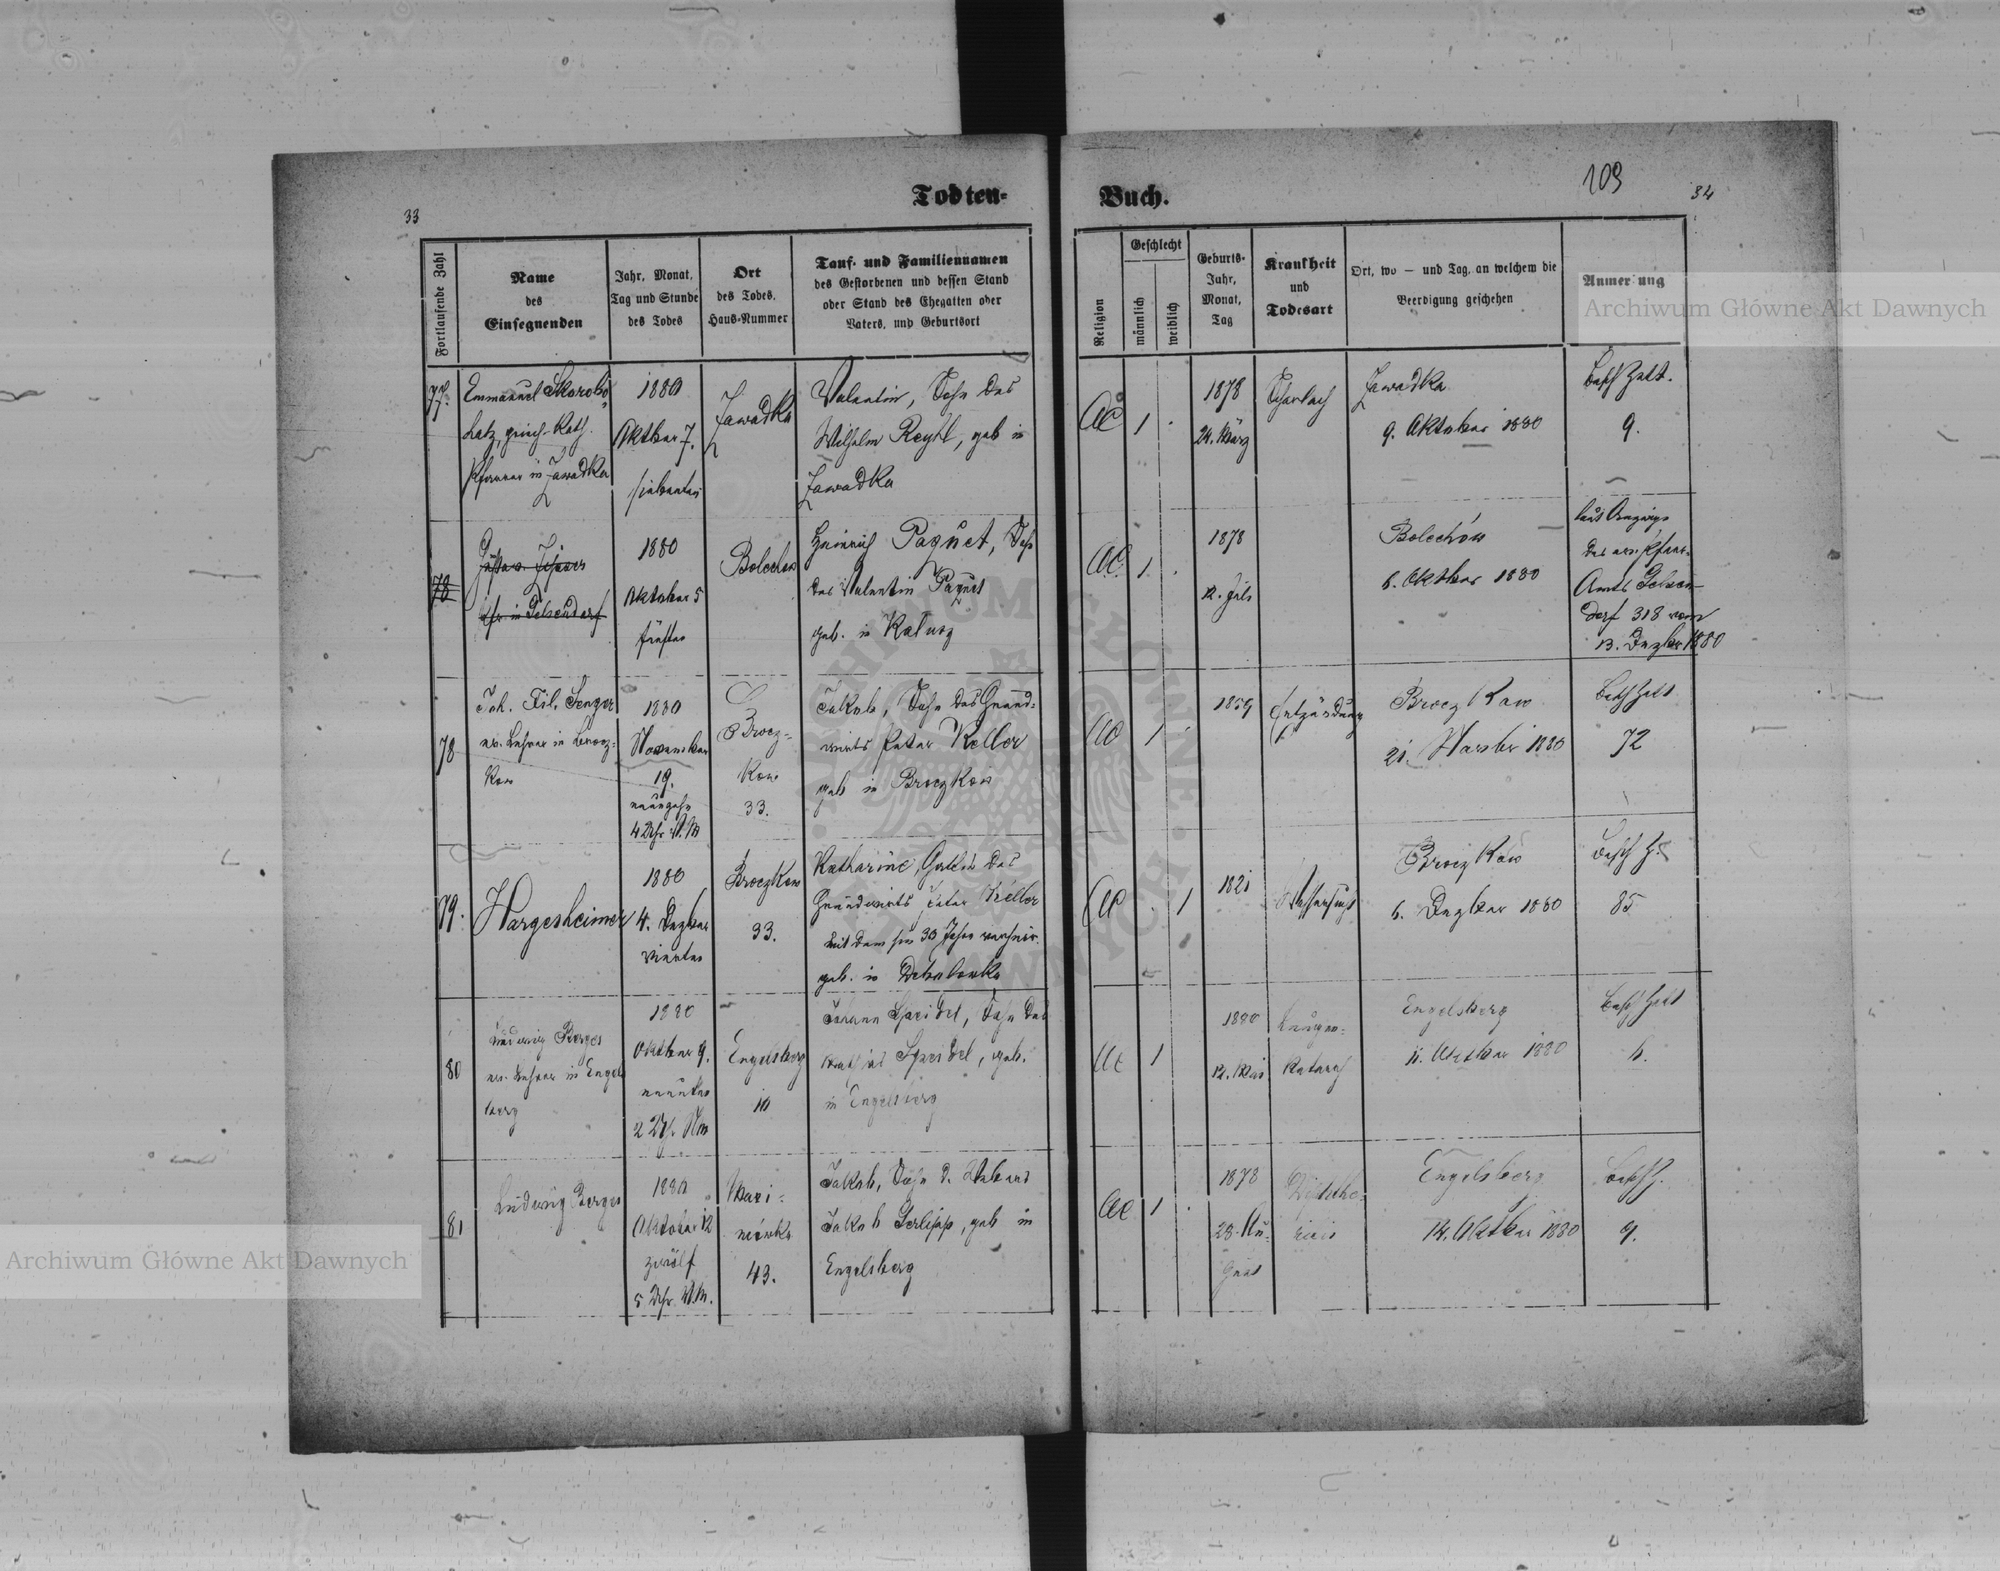 109
33
34
Todten-
Buch.
Fortlaufende Zahl
Name
des
Einsegnenden
Jahr, Monat,
Tag und Stunde
des Todes
Ort
des Todes,
Haus-Nummer
Tauf- und Familiennamen
des Gestorbenen und dessen Stand
oder Stand des Ehegatten oder
Vaters, und Geburtsort
Religion
Geschlecht
männlich
weiblich
Geburts-
Jahr,
Monat,
Tag
Krankheit
und
Todesart
Ort, wo — und Tag, an welchem die
Beerdigung geschehen
Anmer ung
77.
Emmanuel
griech. kath.
Pfarrer in Zawadka
1880
Oktber 7.
siebenten
Zawadka
Valentin, Sohn des
Wilhelm Reyhl, geb in
Zawadka
AC
1
1878
24. März
Scharlach
Zawadka
9. Oktober 1880
9.
78
Gustav
in Gelsendorf
1880
Oktober 5
fünften
Bolechow
Heinrich Paquet, Sohn
des Valentin Paquet
geb. in
AC.
1.
1878
12. Juli
Bolechów
6. Oktber 1880
laut Anzeige
des ev. Pfarr-
Amts Gelsen-
dorf 318 vom
13. Dezber 1880
78
Joh. Fil. Senger
ev. Lehrer in Brocz-
kow
1880
November
19.
neunzehn
4 Uhr
Brocz-
kow
33.
Jakob, Sohn des Grund-
wirts Peter Keller
geb in Broczkow
AC
1
1859
Entzündung
Broczkow
21. 1880
72
79.
Hargesheimer
1880
4. Dezber
vierten
Broczkow
33.
Katharine, Gattin des
Grundwirts Peter Keller
mit dem sie 30 Jahre
geb. in
AC
1
1821
Wassersucht
Broczkow
6. Dezber 1880
85
80
Ludwig Berges
ev. Lehrer in Engels
berg
1880
Oktber 9.
neunten
2 Uhr Nm
Engelsberg
10
Johann Speidel, Sohn des
Speidel, geb.
in Engelsberg
AC
1
1880
12. Mai
Lungen-
katarrh
Engelsberg
11. Oktber 1880
6.
81
Ludwig Berges
1880
Oktober 12
zwölf
5 Uhr V.M.
Mazi-
nówka
43.
Jakob, Sohn d. Webers
Jakob, geb in
Engelsberg
AC
1
1878
23. Au-
gust
Engelsberg
14. Oktber 1880
9.
Archiwum Główne Akt Dawnych
Archiwum Główne Akt Dawnych
ARCHIWUM GŁÓWNE AKT DAWNYCH